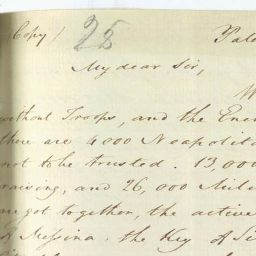 (Copy)
25
Pale
My dear Sir,
W
without Troops, and the Ene
there are 4000 Neapolit
not to be trusted. 13,000
raising, and 26,000 Mili
are got together, the active
of Messina, the Key of Si